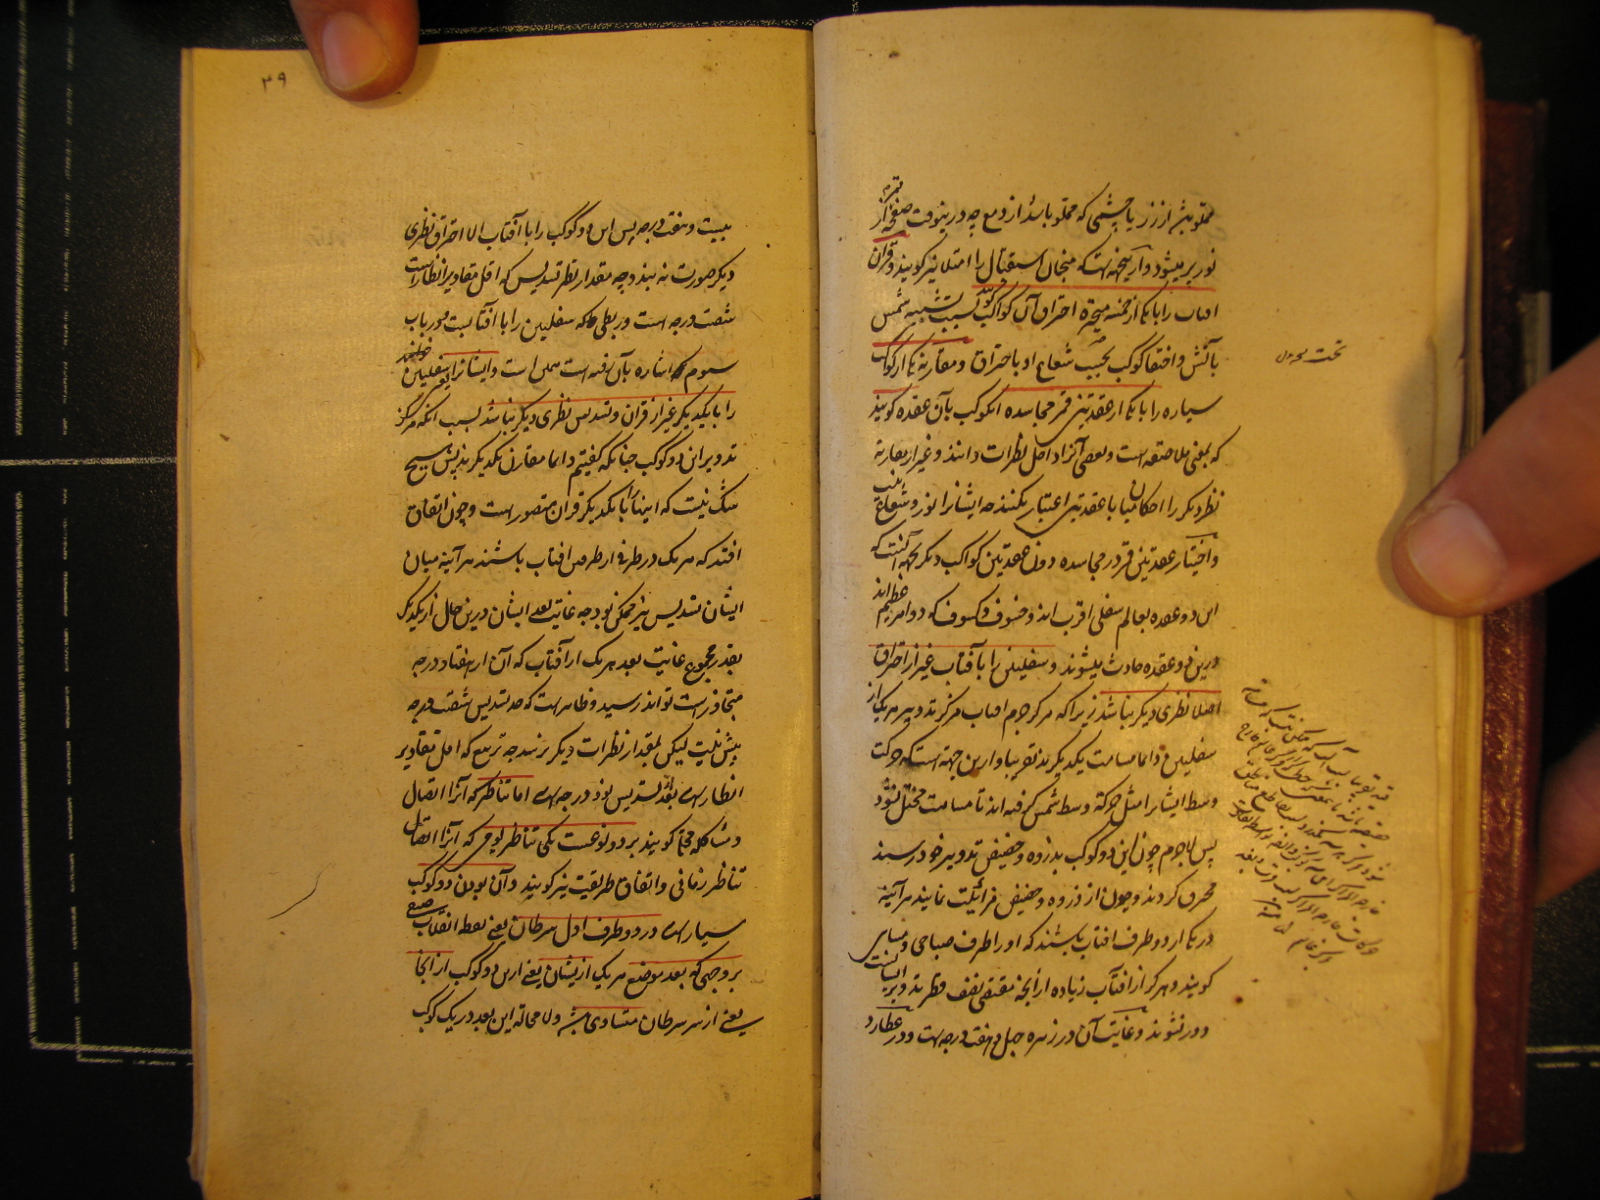 مملو بیشتر از زر یا چشمی که مملو باشد از دمع چه درینوقت صفحهٔ قمر از
نور پر میشود و ازینجهت است که منجمان استقبال را امتلا نیز گویند و قران
افتاب را با یکی از خمسه متحیره احتراق آن کوکب گویند بسبب تشبیه شمس
بآتش و اختفا کوکب تحت شعاع او باحتراق و مقارنه یکی از کواکب
سیاره را با یکی از عقدتین قمر مجاسده آن کوکب بآن عقده گویند
که بمعنی ملاصقه است و بعضی آنرا داخل نظرات دانند و غیر از مقارنه
نظر دیگر را احکامیان با عقدتین اعتبار نکنند چه ایشانرا نور و شعاع نیست
و اختیار عقدتین قمر در مجاسده دون عقدتین کواکب دیگر بجهة آنست که
این دو عقده بعالم سفلی اقرب اند و خسوف و کسوف که دو امر عظیم اند
درین دو عقده حادث میشوند و سفلیین را با آفتاب غیر از احتراق
اصلا نظری دیگر نباشد زیرا که مرکز جرم افتاب و مرکز تدویر هر یک از
سفلیین دائما مسامت یکدیگرند تقریبا و ازین جهة است که حرکت
وسط ایشانرا مثل حرکة وسط شمس گرفته اند تا مسامت مختل نشود
پس لاجرم چون این دو کوکب بذروه و حضیض تدویر خود رسند
محترق گردند و چون از ذروه و حضیض مزائلت نمایند هر آئینه
در یکی از دو طرف افتاب باشند که اورا طرف صباحی و مسایی
گویند و هرگز از آفتاب زیاده از آنچه مقتضی نصف قطر تدویر ایشانست
دور نشوند و غایت آن در زهره چهل و هفت درجه است و در عطارد
تحت سجدول
۳۹
بیست و هفت درجه پس این دو کوکب را با آفتاب الا احتراق نظری
دیگر صورت نه بندد چه مقدار نظر تسدیس که اقل مقادیر انظار است
شصت درجه است و ربطی که سفلیین را با آفتابست و در باب
سوم اشاره بآن رفته است همین است و ایشانرا یعنی سفلیین
را با یکدیگر غیر از قران و تسدیس نظری دیگر نباشد بسبب آنکه مرکز
تدویر این دو کوکب چنانکه گفتیم دایما مقارن یکدیگرند پس هیچ
شک نیست که اینهارا با یکدیگر قران متصور است و چون اتفاق
افتد که هر یک در طرفی از طرفین افتاب باشند هر آئینه میان
ایشان تسدیس نیز ممکن بود چه غایت بعد ایشان درین حال از یکدیگر
بقدر مجموع غایت بعد هر یک از آفتاب که آن از هفتاد درجه
متجاوز است تواند رسید و ظاهر است که حد تسدیس شصت درجه
بیش نیست لیکن بمقدار نظرات دیگر نرسد چه تربیع که اقل مقادیر
انظار است بعد تسدیس نود درجه است اما تناظر که آنرا اتصال
و مشاکله مجازا گویند بر دو نوعست یکی تناظر یومی که آنرا اتصال
تناظر زمانی و اتفاق طریقیت نیز گویند و آن بودن دو کوکب
سیاره است در دو طرف اول سرطان یعنی نقطه انقلاب صیفی
بر وجهی که بعد موضع هر یک ازیشان یعنی ازین دو کوکب از آنجا
یعنی از سر سرطان متساوی باشد و لا محاله این بعد در یک کوکب